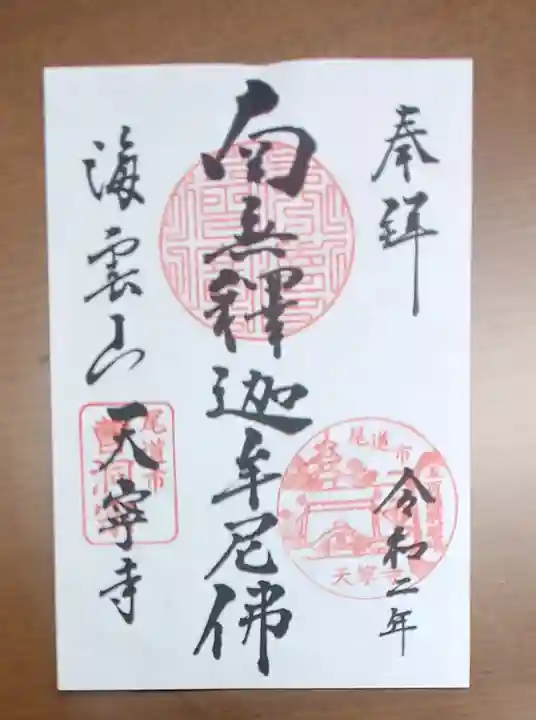 奉拝
令和二年
南無釋迦牟尼佛
海雲山
天寧寺
尾道市
天寧寺
尾道市
曹洞宗